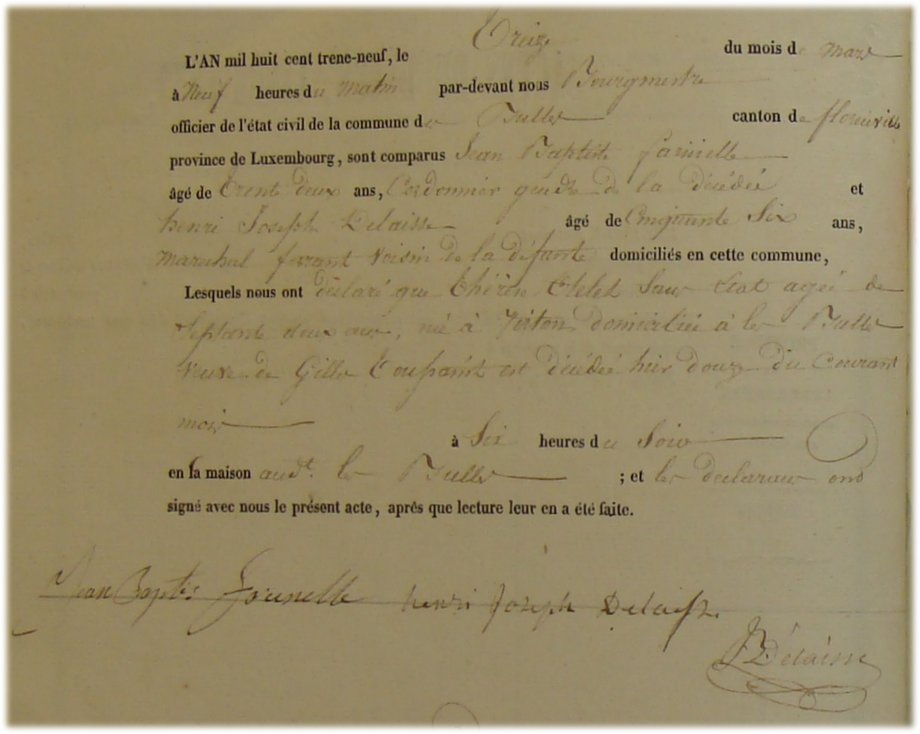 L'AN mil huit cent trene-neuf, le Treize du mois de mars
à Neuf heures du matin par-devant nous Bourgmestre
officier de l'état civil de la commune de Bulles canton de florenville
province de Luxembourg, sont comparus Jean Baptiste
âgé de trent deux ans, Cordonnier gendre de la décédée et
henri Joseph Delaisse âgé de Cinquante Six ans,
marechal ferant voisin de la défunte domiciliés en cette commune,
Lesquels nous ont déclaré que thérèse Sans Etat agée de
Septante deux ans, née à domiciliée à les Bulles
veuve de Gille toussaint est décédée hier douze du Courant
mois
à Six heures du Soir
en sa maison audt. les Bulles ; et les déclarans ond
signé avec nous le présent acte, après que lecture leur en a été faite.
Jean Baptis henri Joseph Delaisse